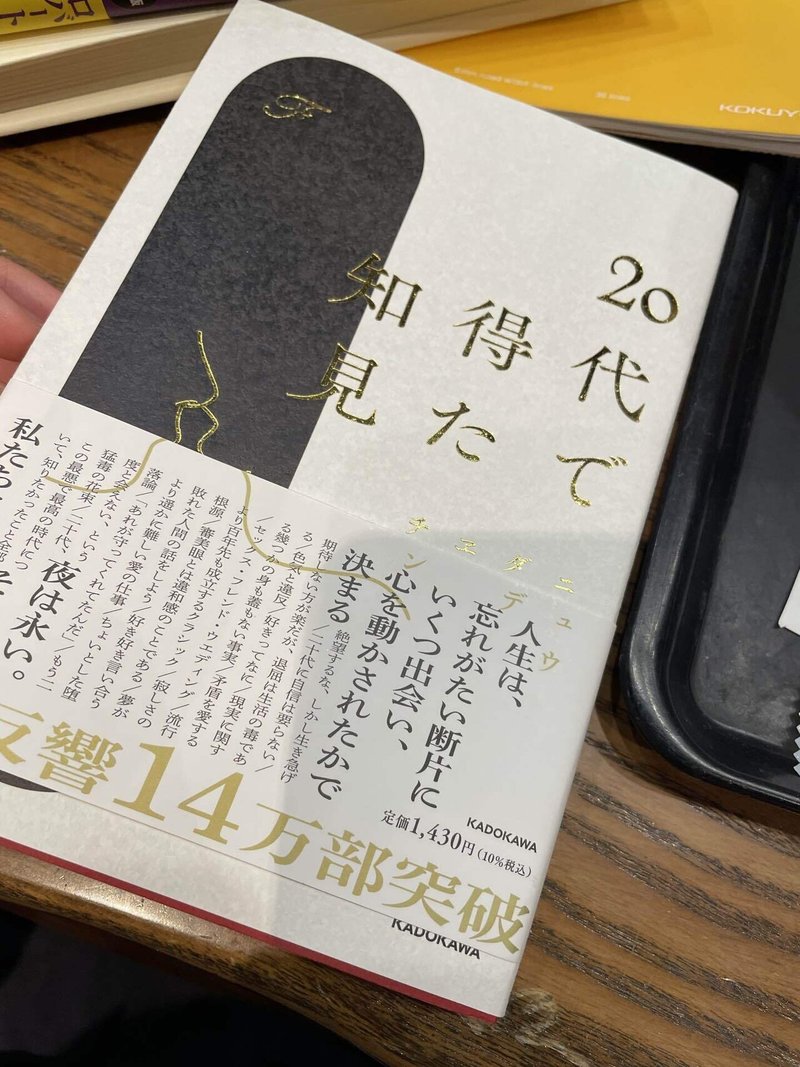 ロバート
KOKUY
F
20代で
得た
知見
人生は、
忘れがたい断片に
いくつ出会い、
心を動かされたかで
決まる
絶望するな、しかし生き急げ
/二十代に自信は要らない/
期待しない方が楽だが、退屈は生活の毒であ
る/色気と違反/好きってなに/現実に関す
る幾つかの身も蓋もない事実/矛盾を愛する
/セックス・フレンド・ウエディング/流行
より百年先も成立するクラシック/寂しさの
根源/審美眼とは違和感のことである/夢が
敗れた人間の話をしよう/好き好き言い合う
より遥かに難しい愛の仕事/ちょいとした堕
落論/「あれが守ってくれてんだ」/もう二
度と会えない、という
猛毒の花束/二十代、
この最悪で最高の時代につ
いて、知りたかったこと全部
夜は永い。
私たち
KADOKAWA
定価1,430円(10%税込)
反響14万部突破
KADOKAWA